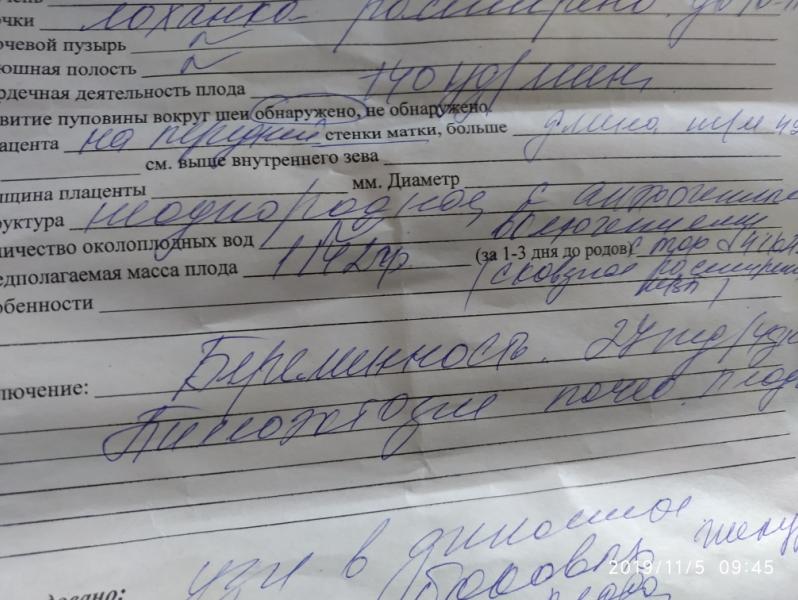 очки лоханка расширена до 10
очевой пузырь N
юшная полость N
рдечная деятельность плода 140 уд/мин,
витие пуповины вокруг шеи обнаружено, не обнаружено
ацента на передней стенки матки, больше длина
см. выше внутреннего зева
щина плаценты мм. Диаметр
руктура неоднородное с
ичество околоплодных вод N включениями
едполагаемая масса плода 1142гр. (за 1-3 дня до родов)
обенности
лючение: Беременность. 27
Пиелоэктазия почек плода
узи в динамике
довано:
2019/11/5 09:45